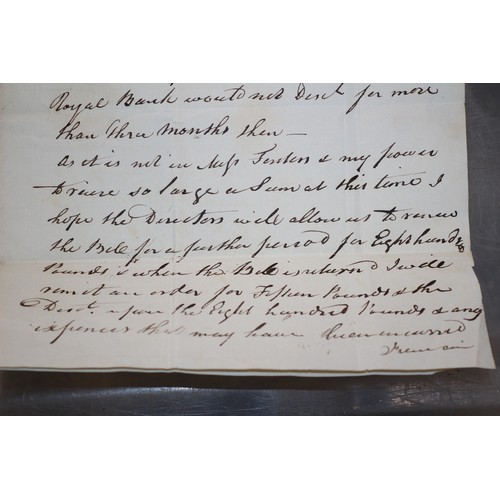 Royal Bank would not Disct for more
than three months then —
As it is not in Messrs & my power
to raise so large a Sum at this time I
hope the Directors will allow us to renew
the Bill for a further period for Eight hundd
Pounds & when the Bill is returned I will
remit an order for Fifteen Pounds & the
Disct. upon the Eight hundred Pounds & any
expences that may have been incurred
I remain